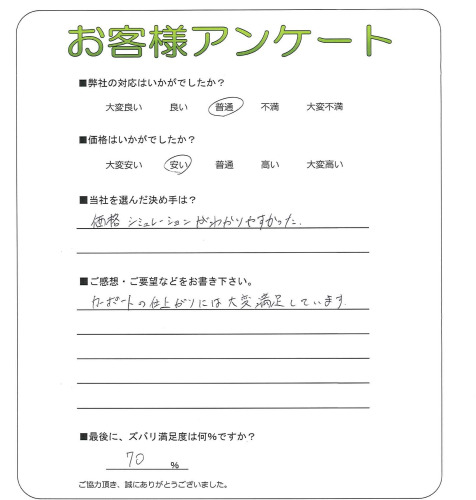 お客様アンケート
■弊社の対応はいかがでしたか？
大変良い 良い 普通 不満 大変不満
■価格はいかがでしたか？
大変安い 安い 普通 高い 大変高い
■当社を選んだ決め手は？
価格シミュレーションがわかりやすかった.
■ご感想・ご要望などをお書き下さい。
カーポートの仕上がりには大変満足しています
■最後に、ズバリ満足度は何％ですか？
70 ％
ご協力頂き、誠にありがとうございました。